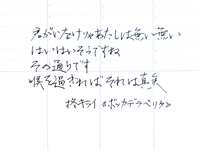 君がいなけりゃあたしは無い無い
はいはいそうですね
その通りです
喉を過ぎればそれは真実
柊キライ《ボッカデラベリタ》